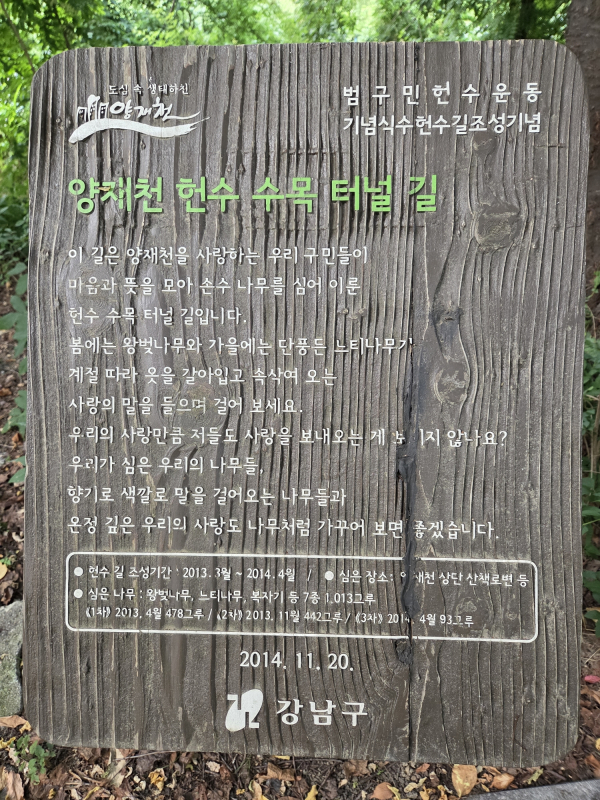 도심 속 생태하천
양재천
범구민헌수운동
기념식수헌수길조성기념
양재천 헌수 수목 터널 길
이 길은 양재천을 사랑하는 우리 구민들이
마음과 뜻을 모아 손수 나무를 심어 이룬
헌수 수목 터널 길입니다.
봄에는 왕벚나무와 가을에는 단풍든 느티나무가
계절 따라 옷을 갈아입고 속삭여 오는
사랑의 말을 들으며 걸어 보세요.
우리의 사랑만큼 저들도 사랑을 보내오는 게 않나요?
우리가 심은 우리의 나무들,
향기로 색깔로 말을 걸어오는 나무들과
온정 깊은 우리의 사랑도 나무처럼 가꾸어 보면 좋겠습니다.
● 헌수 길 조성기간 : 2013. 3월 ~ 2014. 4월 / ● 심은 장소 : 양재천 상단 산책로변 등
● 심은 나무 : 왕벚나무, 느티나무, 복자기 등 7종 1,013그루
《1차》 2013. 4월 478그루 / 《2차》 2013. 11월 442그루 / 《3차》 2014. 4월 93그루
2014. 11. 20.
강남구